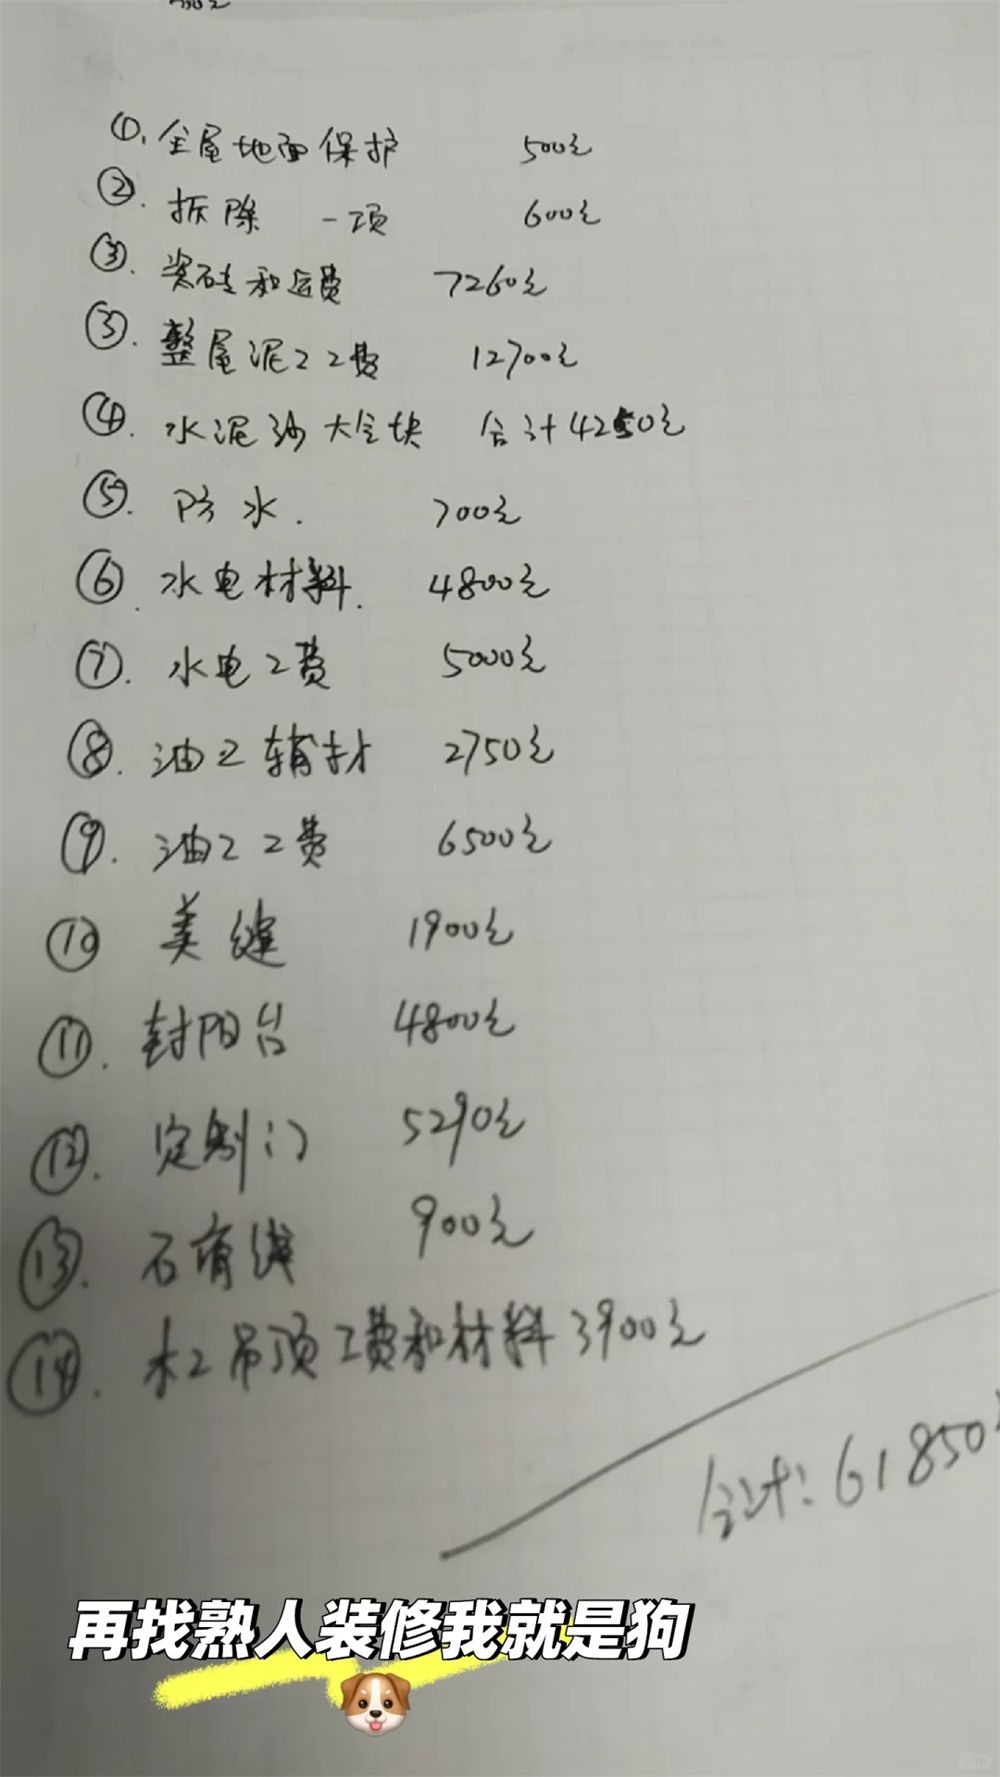 ①. 全屋地面保护 500元
②. 拆除 一项 600元
③. 瓷砖和运费 7260元
③. 整屋泥工工费 12700元
④. 水泥沙大仝块 合计4250元
⑤. 防水. 700元
⑥. 水电材料. 4800元
⑦. 水电工费 5000元
⑧. 油工辅材 2750元
⑨. 油工工费 6500元
⑩ 美缝 1900元
⑪. 封阳台 4800元
⑫. 定制门 5290元
⑬. 石膏线 900元
⑭. 木工吊顶工费和材料 3900元
合计: 61850
再找熟人装修我就是狗